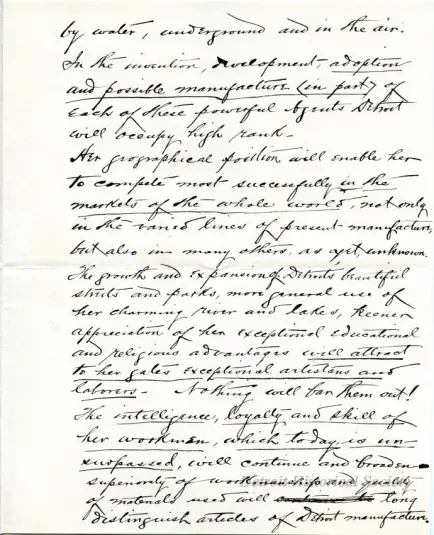 by water, underground and in the air.
In the invention, development, adoption
and possible manufacture (in part) of
each of these powerful Agents Detroit
will occupy high rank.
Her geographical position will enable her
to compete most successfully in the
markets of the whole world, not only
in the varied lines of present manufacture,
but also in many others, as yet, unknown.
The growth and expansion of Detroits beautiful
streets and parks, more general use of
her charming river and lakes, keener
appreciation of her exceptional educational
and religious advantages will attract
to her gates exceptional artistans and
laborers - Nothing will bar them out!
The intelligence, loyalty and skill of
her workmen, which today is un-
surpassed, will continue and broaden
superiority of workmanship and quality
of materials used will long
distinguish articles of Detroit manufacture.